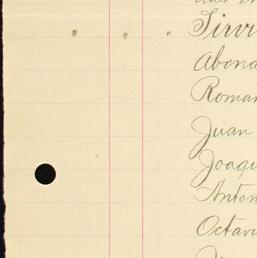 " " " Tirvi
Abona
Roman
Juan
Joaqu
Anton
Octavi